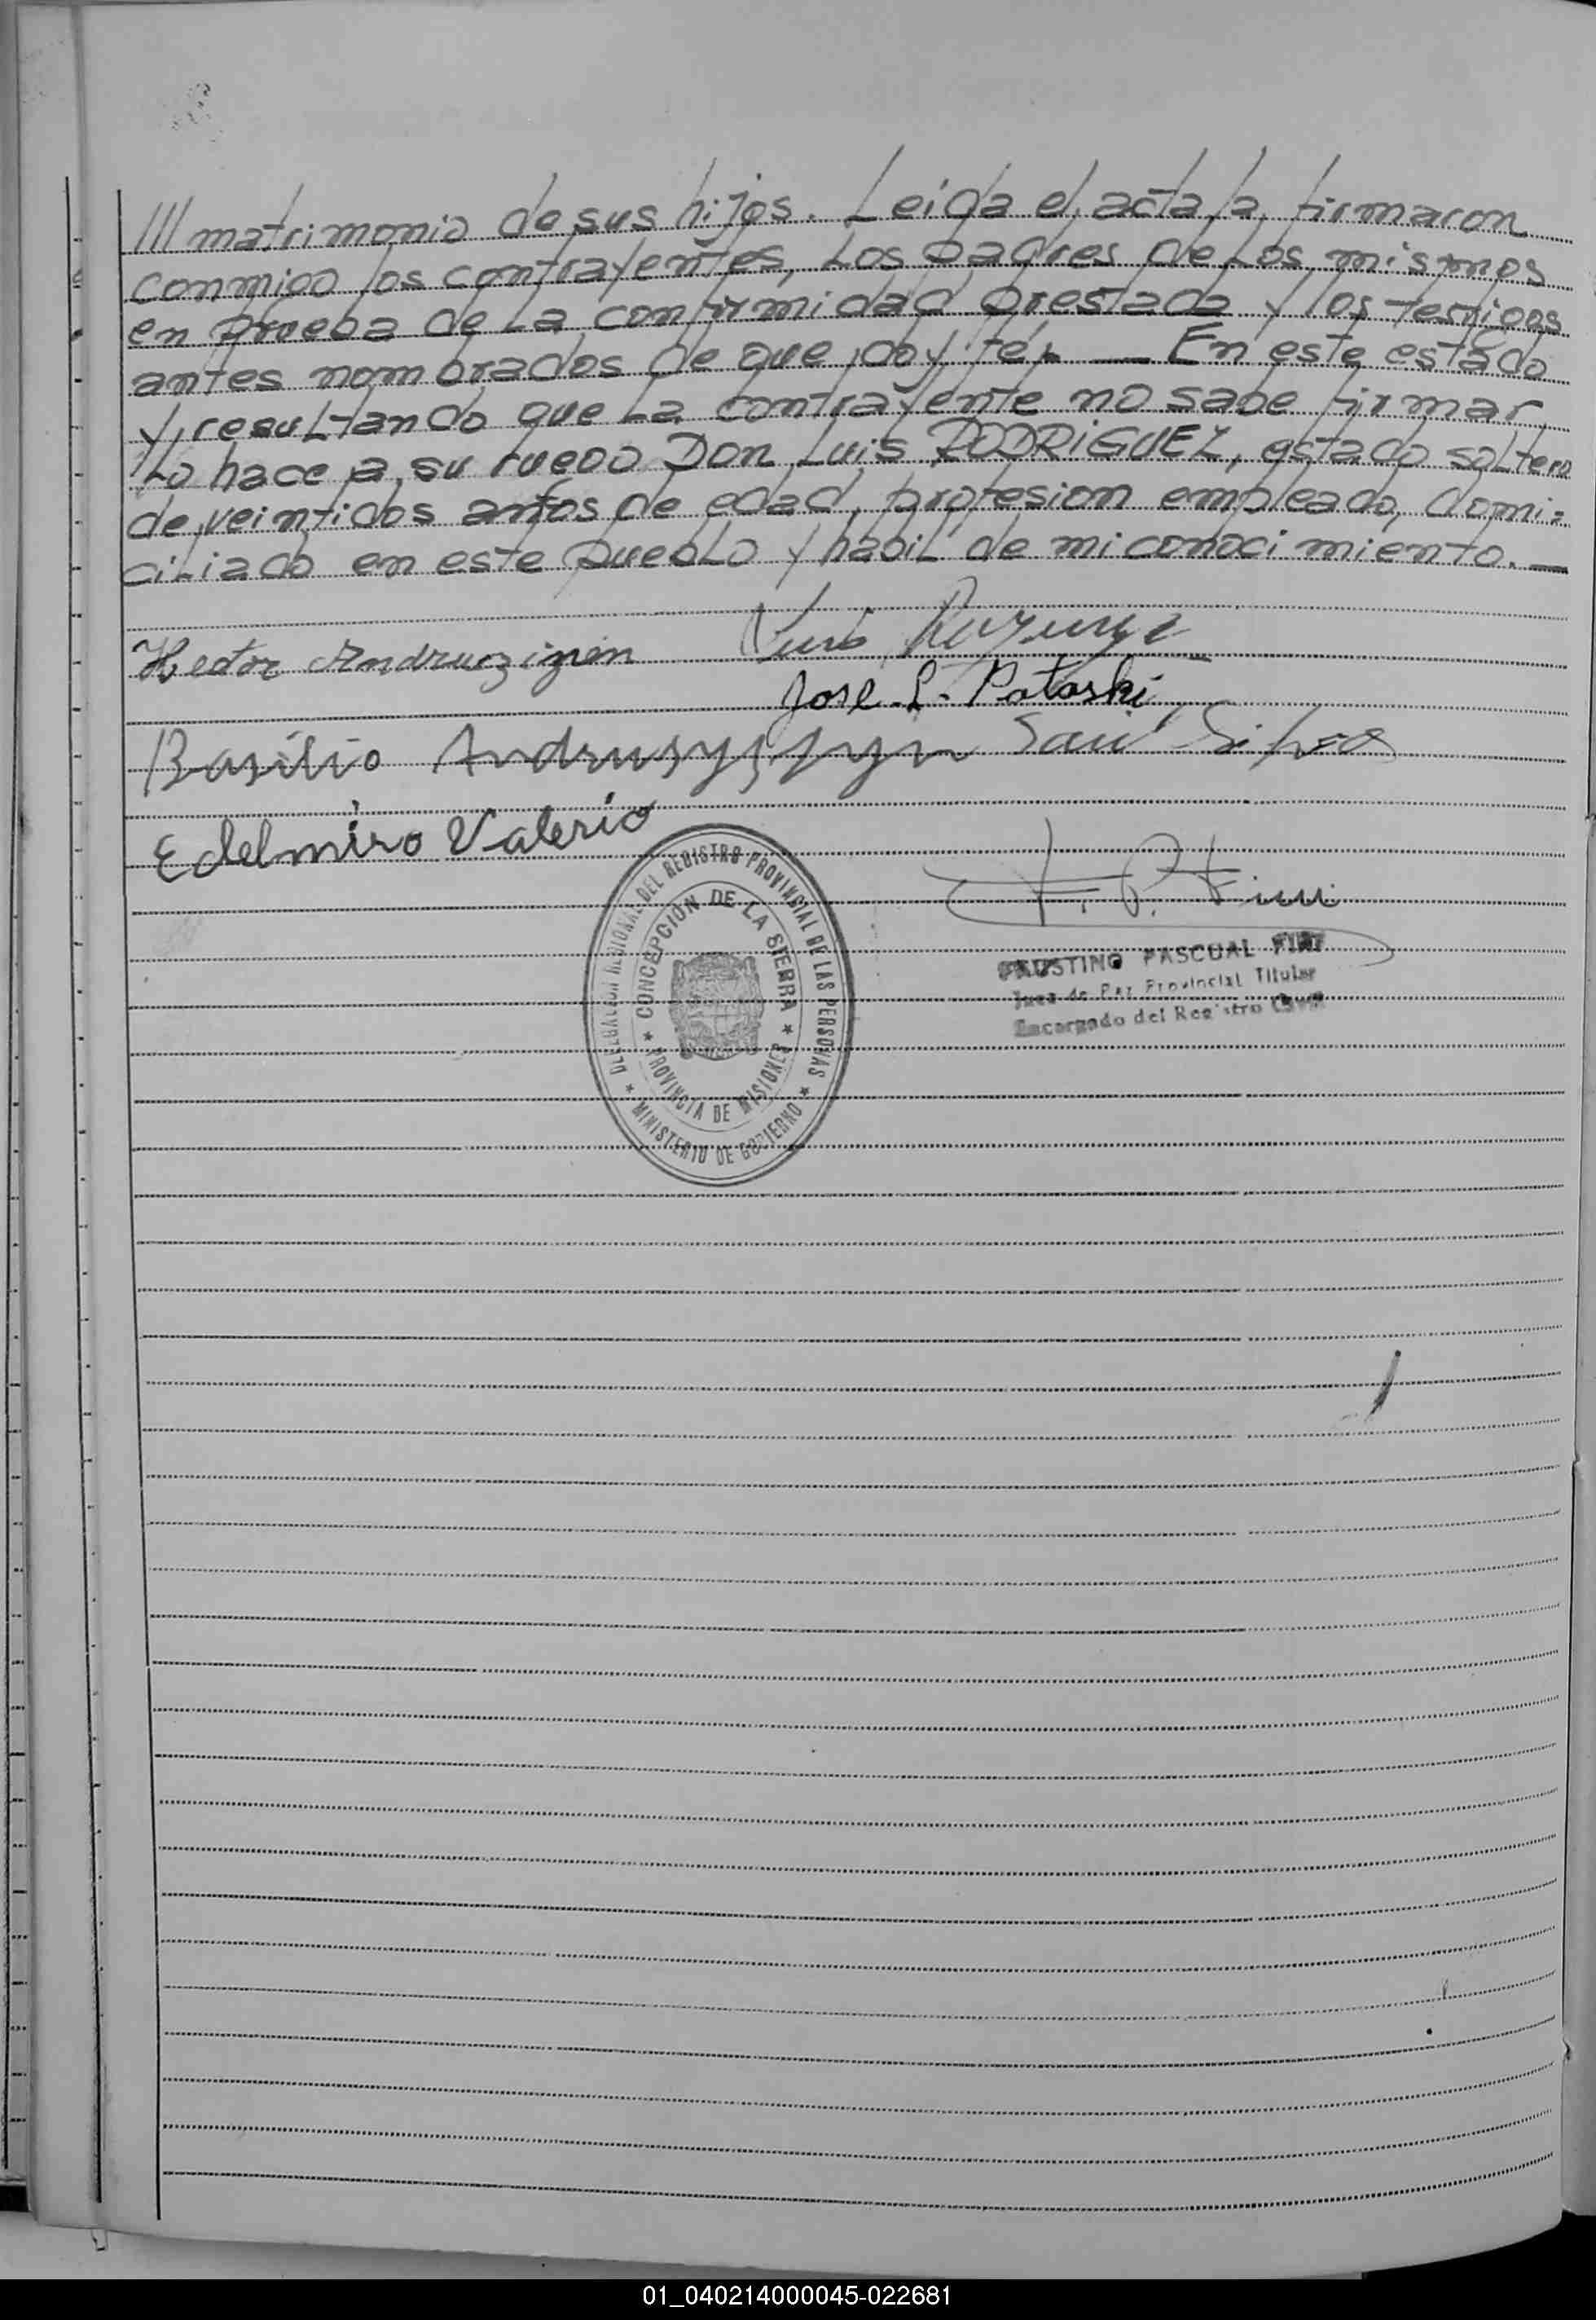 /// matrimonio de sus hijos. Leida el acta, la firmaron
conmigo los contrayentes, Los padres de Los mismos
en prueba de La conformidad prestada y los testigos
antes nombrados de que doy fé.- — En este estado
y resultando que La contrayente no sabe firmar
Lo hace a su ruego Don Luis RODRIGUEZ, estado soltero
de veintidos años de edad, profesion empleado, domi=
ciliado en este pueblo y habil de mi conocimiento. —
Hector Andruszizin
Jose L. Pataski
Basilio
Edelmiro Valerio
F. P. Fiui
DELEGACION REGIONAL DEL REGISTRO PROVINCIAL DE LAS PERSONAS
CONCEPCION DE LA SIERRA
PROVINCIA DE MISIONES
MINISTERIO DE GOBIERNO
FAUSTINO PASCUAL
Juez de Paz Provincial Titular
Encargado del Registro Civil
01_040214000045-022681